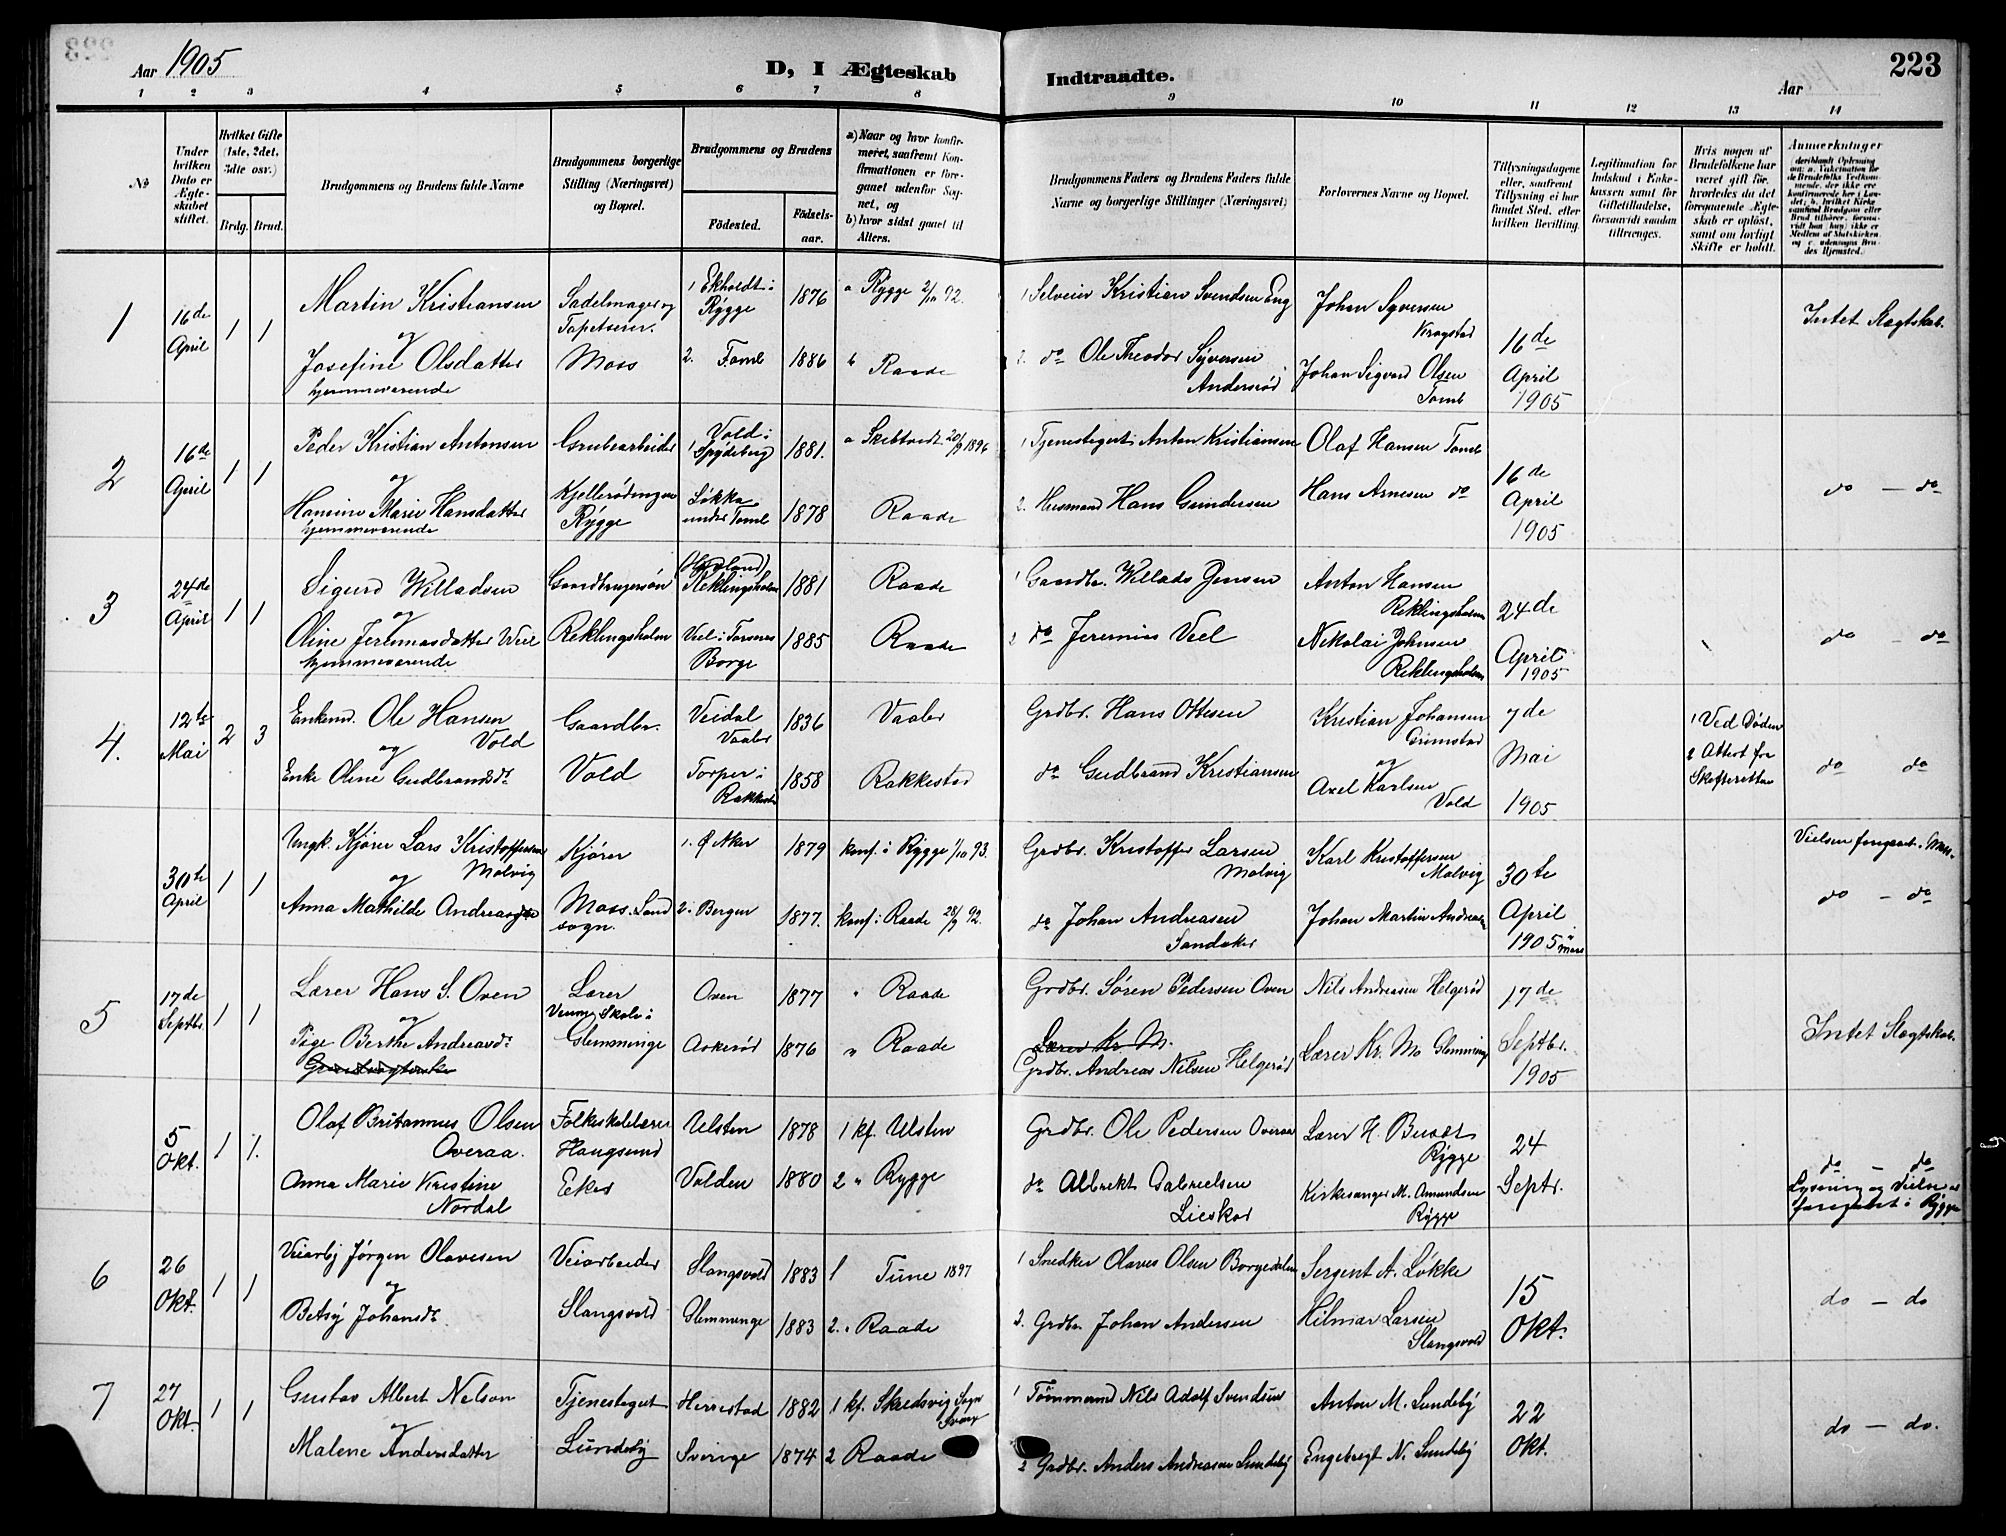 Aar 1905
D, I Ægteskab Indtraadte.
223
Aar
1 2 3 4 5 6 7 8 9 10 11 12 13 14
No
Under hvilken Dato er Ægteskabet stiftet.
Hvilket Gifte (1ste, 2det, 3die osv.)
Brdg. Brud.
Brudgommens og Brudens fulde Navne
Brudgommens borgerlige Stilling (Næringsvei) og Bopæl.
Brudgommens og Brudens
Fødested. Fødselsaar.
a) Naar og hvor konfirmeret, saafremt Konfirmationen er foregaaet udenfor Sognet, og
b) hvor sidst gaaet til Alters.
Brudgommens Faders og Brudens Faders fulde Navne og borgerlige Stillinger (Næringsvei)
Forlovernes Navne og Bopæl.
Tillysningsdagene eller, saafremt Tillysning ei har fundet Sted, efter hvilken Bevilling.
Legitimation for Indskud i Enkekassen samt for Giftetilladelse, forsaavidt saadan tiltrænges.
Hvis nogen af Brudefolkene har været gift før, hvorledes da det foregaaende Ægteskab er opløst, samt om lovligt Skifte er holdt.
Anmerkninger
1
16de April
1 1
Martin Kristiansen
og
Josefine Olsdatter
hjemmeværende
Sadelmager og
Tapetserer.
Moss
1 Ekholdt i Rygge 1876
2. Tomb 1886
a Rygge 2/10 92.
Raade
1 Selveier Kristian Svendsen Eng
2. do Ole Theodor Syversen
Andersrød
Johan Syversen
Krogstad
Johan Sigvard Olsen
Tomb
16de April 1905
Intet Slagtskab.
2
16de April
1 1
Peder Kristian Antonsen
og
Hansine Marie Hansdatter
hjemmeværende
Grubearbeider
Kjellerødengen
Rygge
1 Vold i Spydeberg 1881.
Løkka under Tomb 1878
a Skibtvedt 20/9 1896
Raade
1 Tjenestegut Anton Kristiansen
2. Husmand Hans Gundersen
Olaf Hansen Tomb
Hans Arnesen do
16de April 1905
do — do
3
24de April
1 1
Sigurd Willadsen
og
Oline Jeremiasdatter Veel
hjemmeværende
Gaardbrugersøn
Reklingsholm
Reklingsholm 1881
Veel i Torsnes
Borge 1885
Raade
Raade
1 Gaardbr. Willads Jensen
2 do Jeremias Veel
Anton Hansen
Reklingsholm
Nikolai Johnsen
Reklingsholm
24de April 1905
do — do
4.
12te Mai
2 3
Enkem. Ole Hansen
og Vold
Enke Oline Gudbrandsdr.
Gaardbr.
Vold
Veidal
Vaaler 1836
Torper i
Rakkestad 1858
Vaaler
Rakkestad
Grdbr. Hans Ottesen
do Gudbrand Kristiansen
Kristian Johansen
Grimstad
og
Axel Karlsen
Vold
7de Mai 1905
1 Ved Døden
2 Attest fra
Skifteretten
do do
30te April
1 1
Ungk. Kjører Lars Kristoffersen
og Molvig
Anna Mathilde Andreasdtr
Kjører
Moss Land
sogn.
1. Ø Aker 1879
2. Bergen 1877.
konf. i Rygge 1/10 93.
konf. i Raade 28/9 92.
Grdbr. Kristoffer Larsen
Molvig
do Johan Andreasen
Sandaker
Karl Kristoffersen
Molvig
Johan Martin Andreasen
30te April 1905 i Moss
Vielsen foregaaet i Moss.
do — do
5
17de Septbr.
1 1
Lærer Hans S. Oven
og
Pige Berthe Andreasdr.
Lærer
Veum Skole i
Glemminge
Oven 1877
Askerød 1876
" Raade
" Raade
Grdbr. Søren Pedersen Oven
Lærer Kr. M.
Grdbr. Andreas Nilsen Helgerød
Nils Andreasen Helgerød
Lærer Kr. Mo Glemminge
17de Septbr. 1905
Intet Slagtskab.
5 Okt.
1 1.
Olaf Britannus Olsen
Overaa.
Anna Marie Kristine
Nordal
Folkeskolelærer
Haugsund
Eker
Ulsten 1878
Volden 1880
1 kf. Ulsten
2 " Rygge
Grdbr. Ole Pedersen Overaa
do Albrekt Gabrielsen
Lieskor
Lærer H. Buset
Rygge
Kirkesanger M. Amundsen
Rygge
24 Septr.
do — do
Lysning og Vielse er
foregaaet i Rygge
6
26 Okt.
1 1
Veiarb. Jørgen Olavesen
og
Betsy Johansdr.
Veiarbeider
Slangsvold
Slangsvold 1883
Glemminge 1883
1 Tune 1897
2. " Raade
1 Snedker Olaves Olsen Borgedalen
2. Grdbr. Johan Andersen
Sergent A. Løkke
Hilmar Larsen
Slangsvold
15 Okt.
do — do
7
27 Okt.
1 1
Gustav Albert Nelson
og
Malene Andersdatter
Tjenestegut
Lundeby
Herrestad 1882
Sverige 1874
1 kf. Skredsvig Sogn
Sverig
2 Raade
1 Tømmermd Nils Adolf Svendsen
2 Grdbr. Anders Andreasen Lundeby
Anton M. Lundeby
Engebregt N. Lundeby
22 Okt.
do — do.